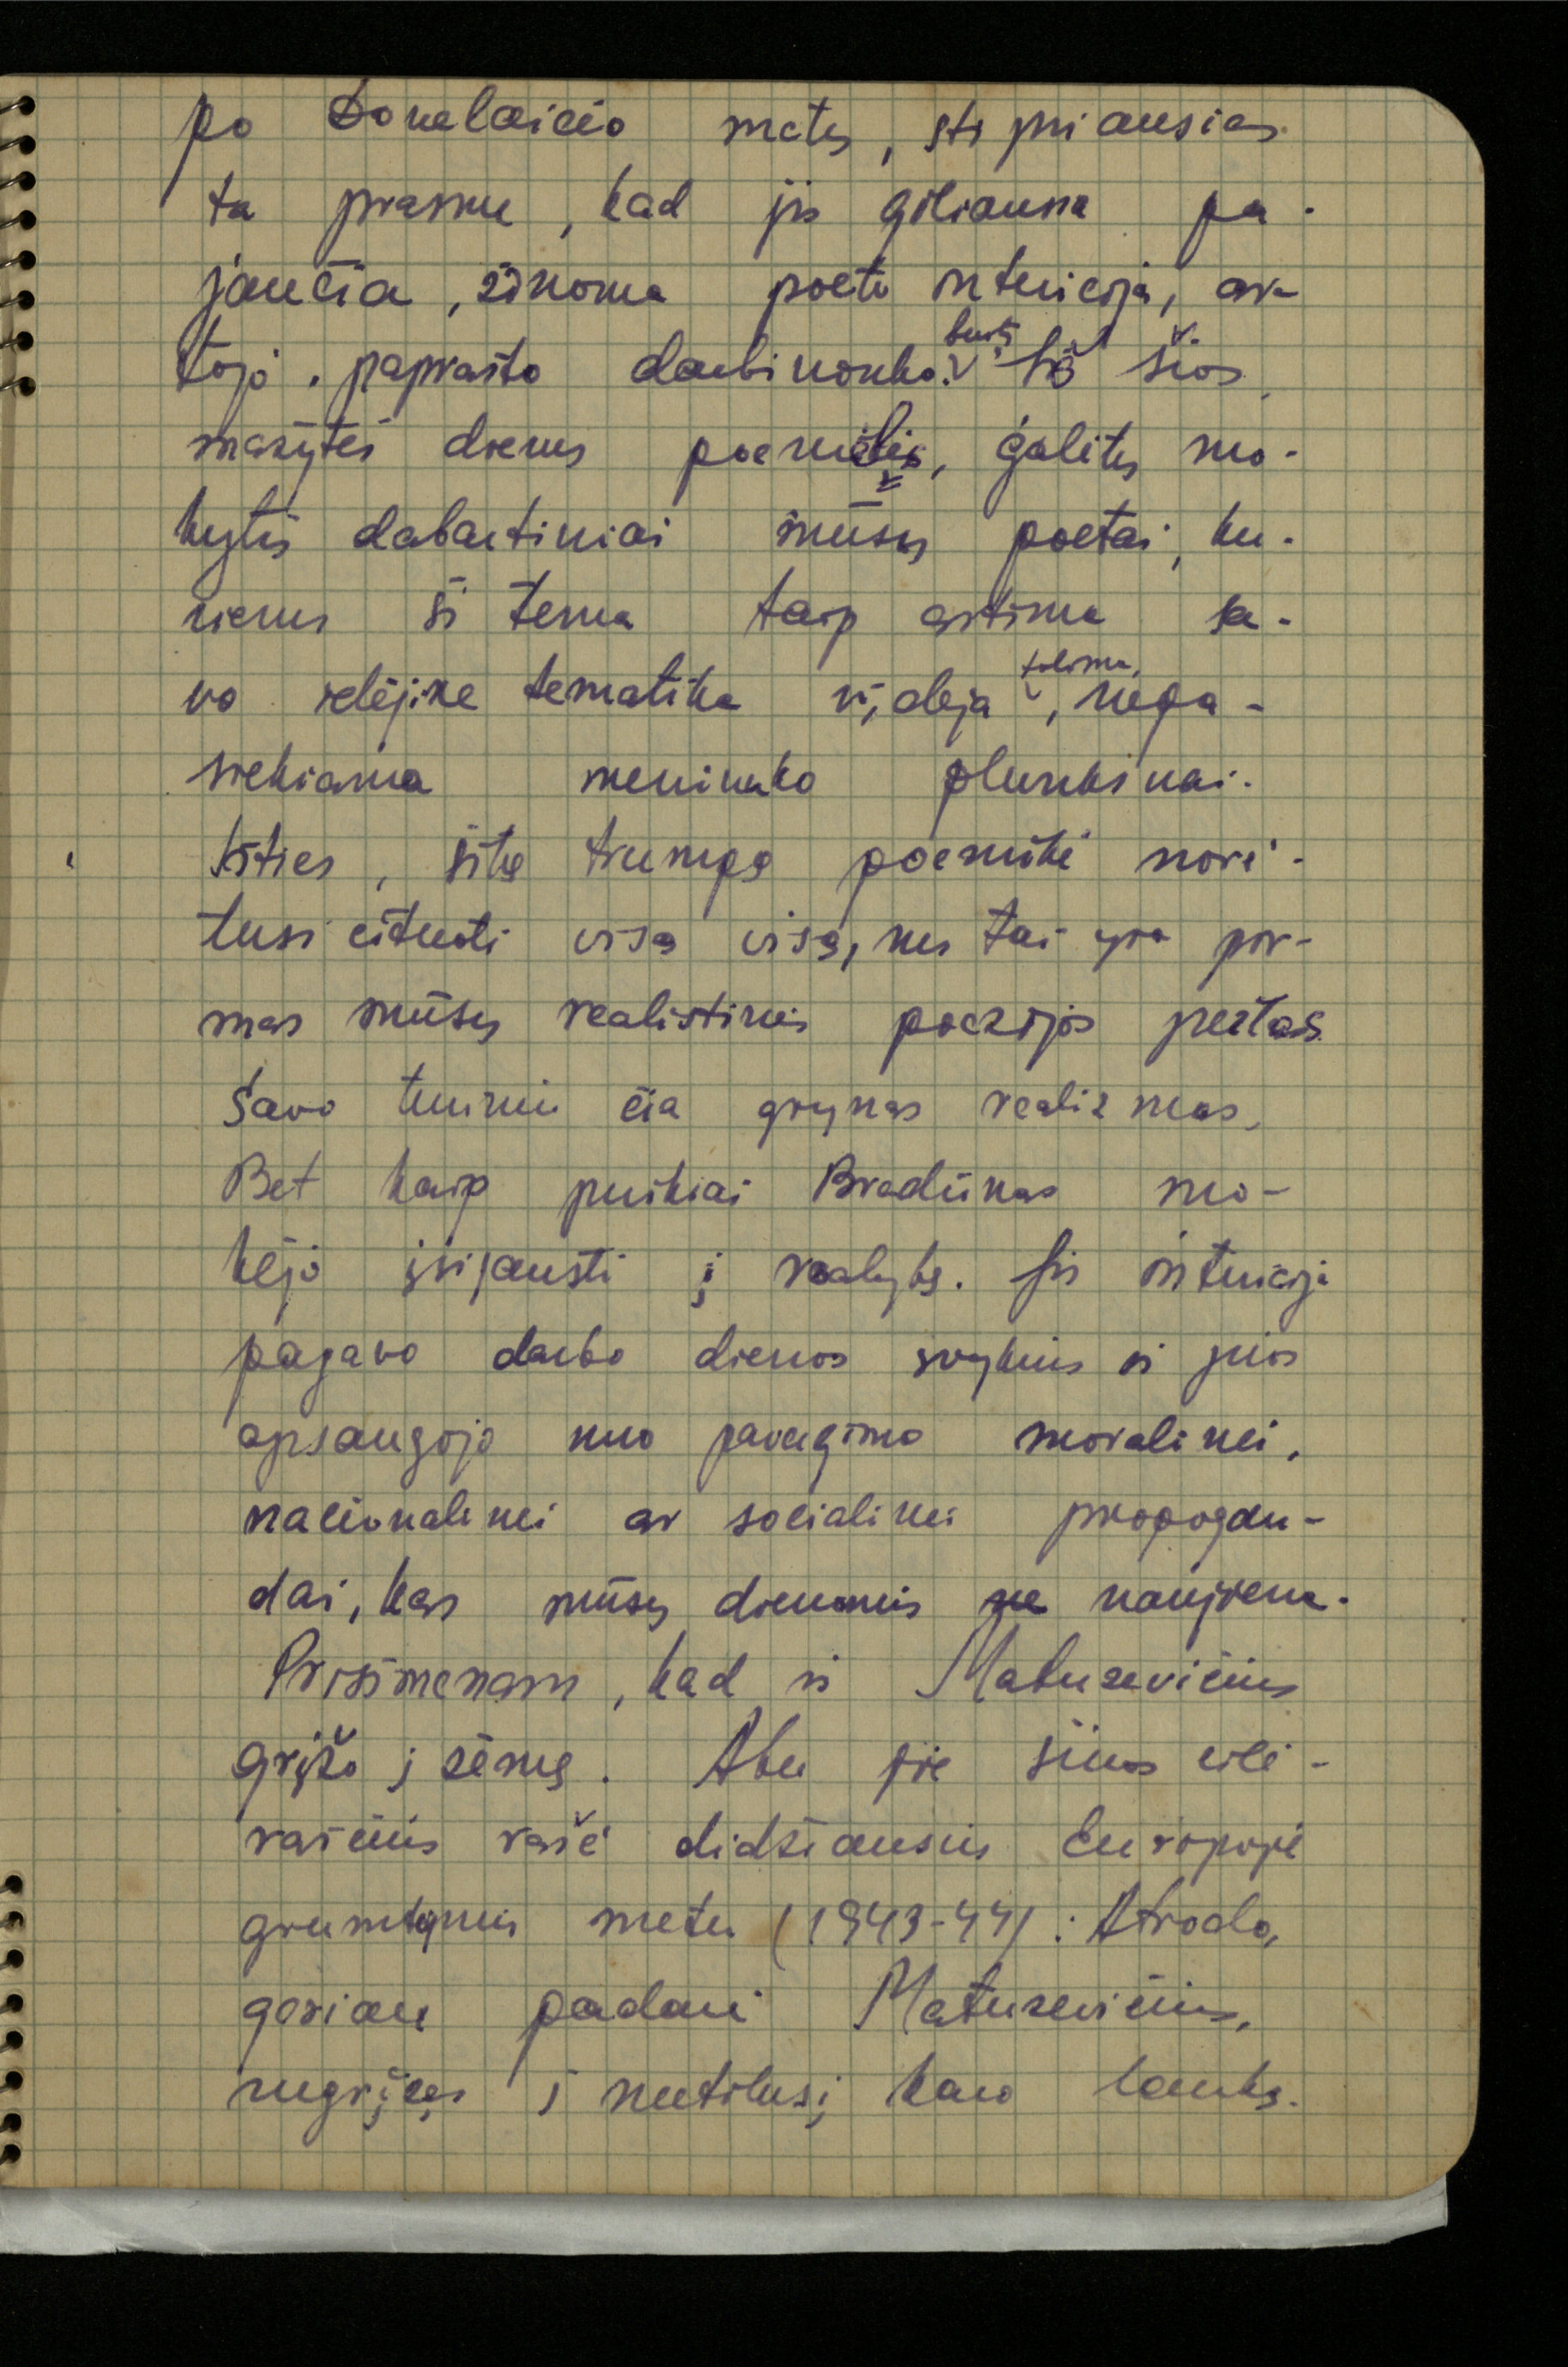 po Donelaičio metų, stipriausias
ta prasme, kad jis giliausia pa-
jaučia, žinoma poeto intuicija, ar-
tojo, paprasto darbininko būtį. Iš šios
mažytės dienos poemėlės, galėtų mo-
kytis dabartiniai mūsų poetai, ku-
riems ši tema taip artima sa-
vo idėjine tematika ir, deja tolima, nepa-
siekiama menininko plunksnai.
Išties, šitą trumpą poemikę norė-
tųsi cituoti visą visą, nes tai yra pir-
mas mūsų realistinės poezijos perlas.
Savo turiniu čia grynas realizmas,
Bet kaip puikiai Bradūnas mo-
kėjo įsijausti į realybę. Jis intuicija
pagavo darbo dienos ir juos
apsaugojo nuo pavergimo moralinei,
nacionalinei ar socialinei propogan-
dai, kas mūsų dienomis ne naujiena.
Prisimenam, kad ir Matuzevičius
grįžo į žemę. Abu jie šiuos eilė-
raščius rašė didžiausių Europoje
grumtynių metu (1943-44). Atrodo,
geriau padarė Matuzevičius,
sugrįžęs į nutilusį karo lauką.